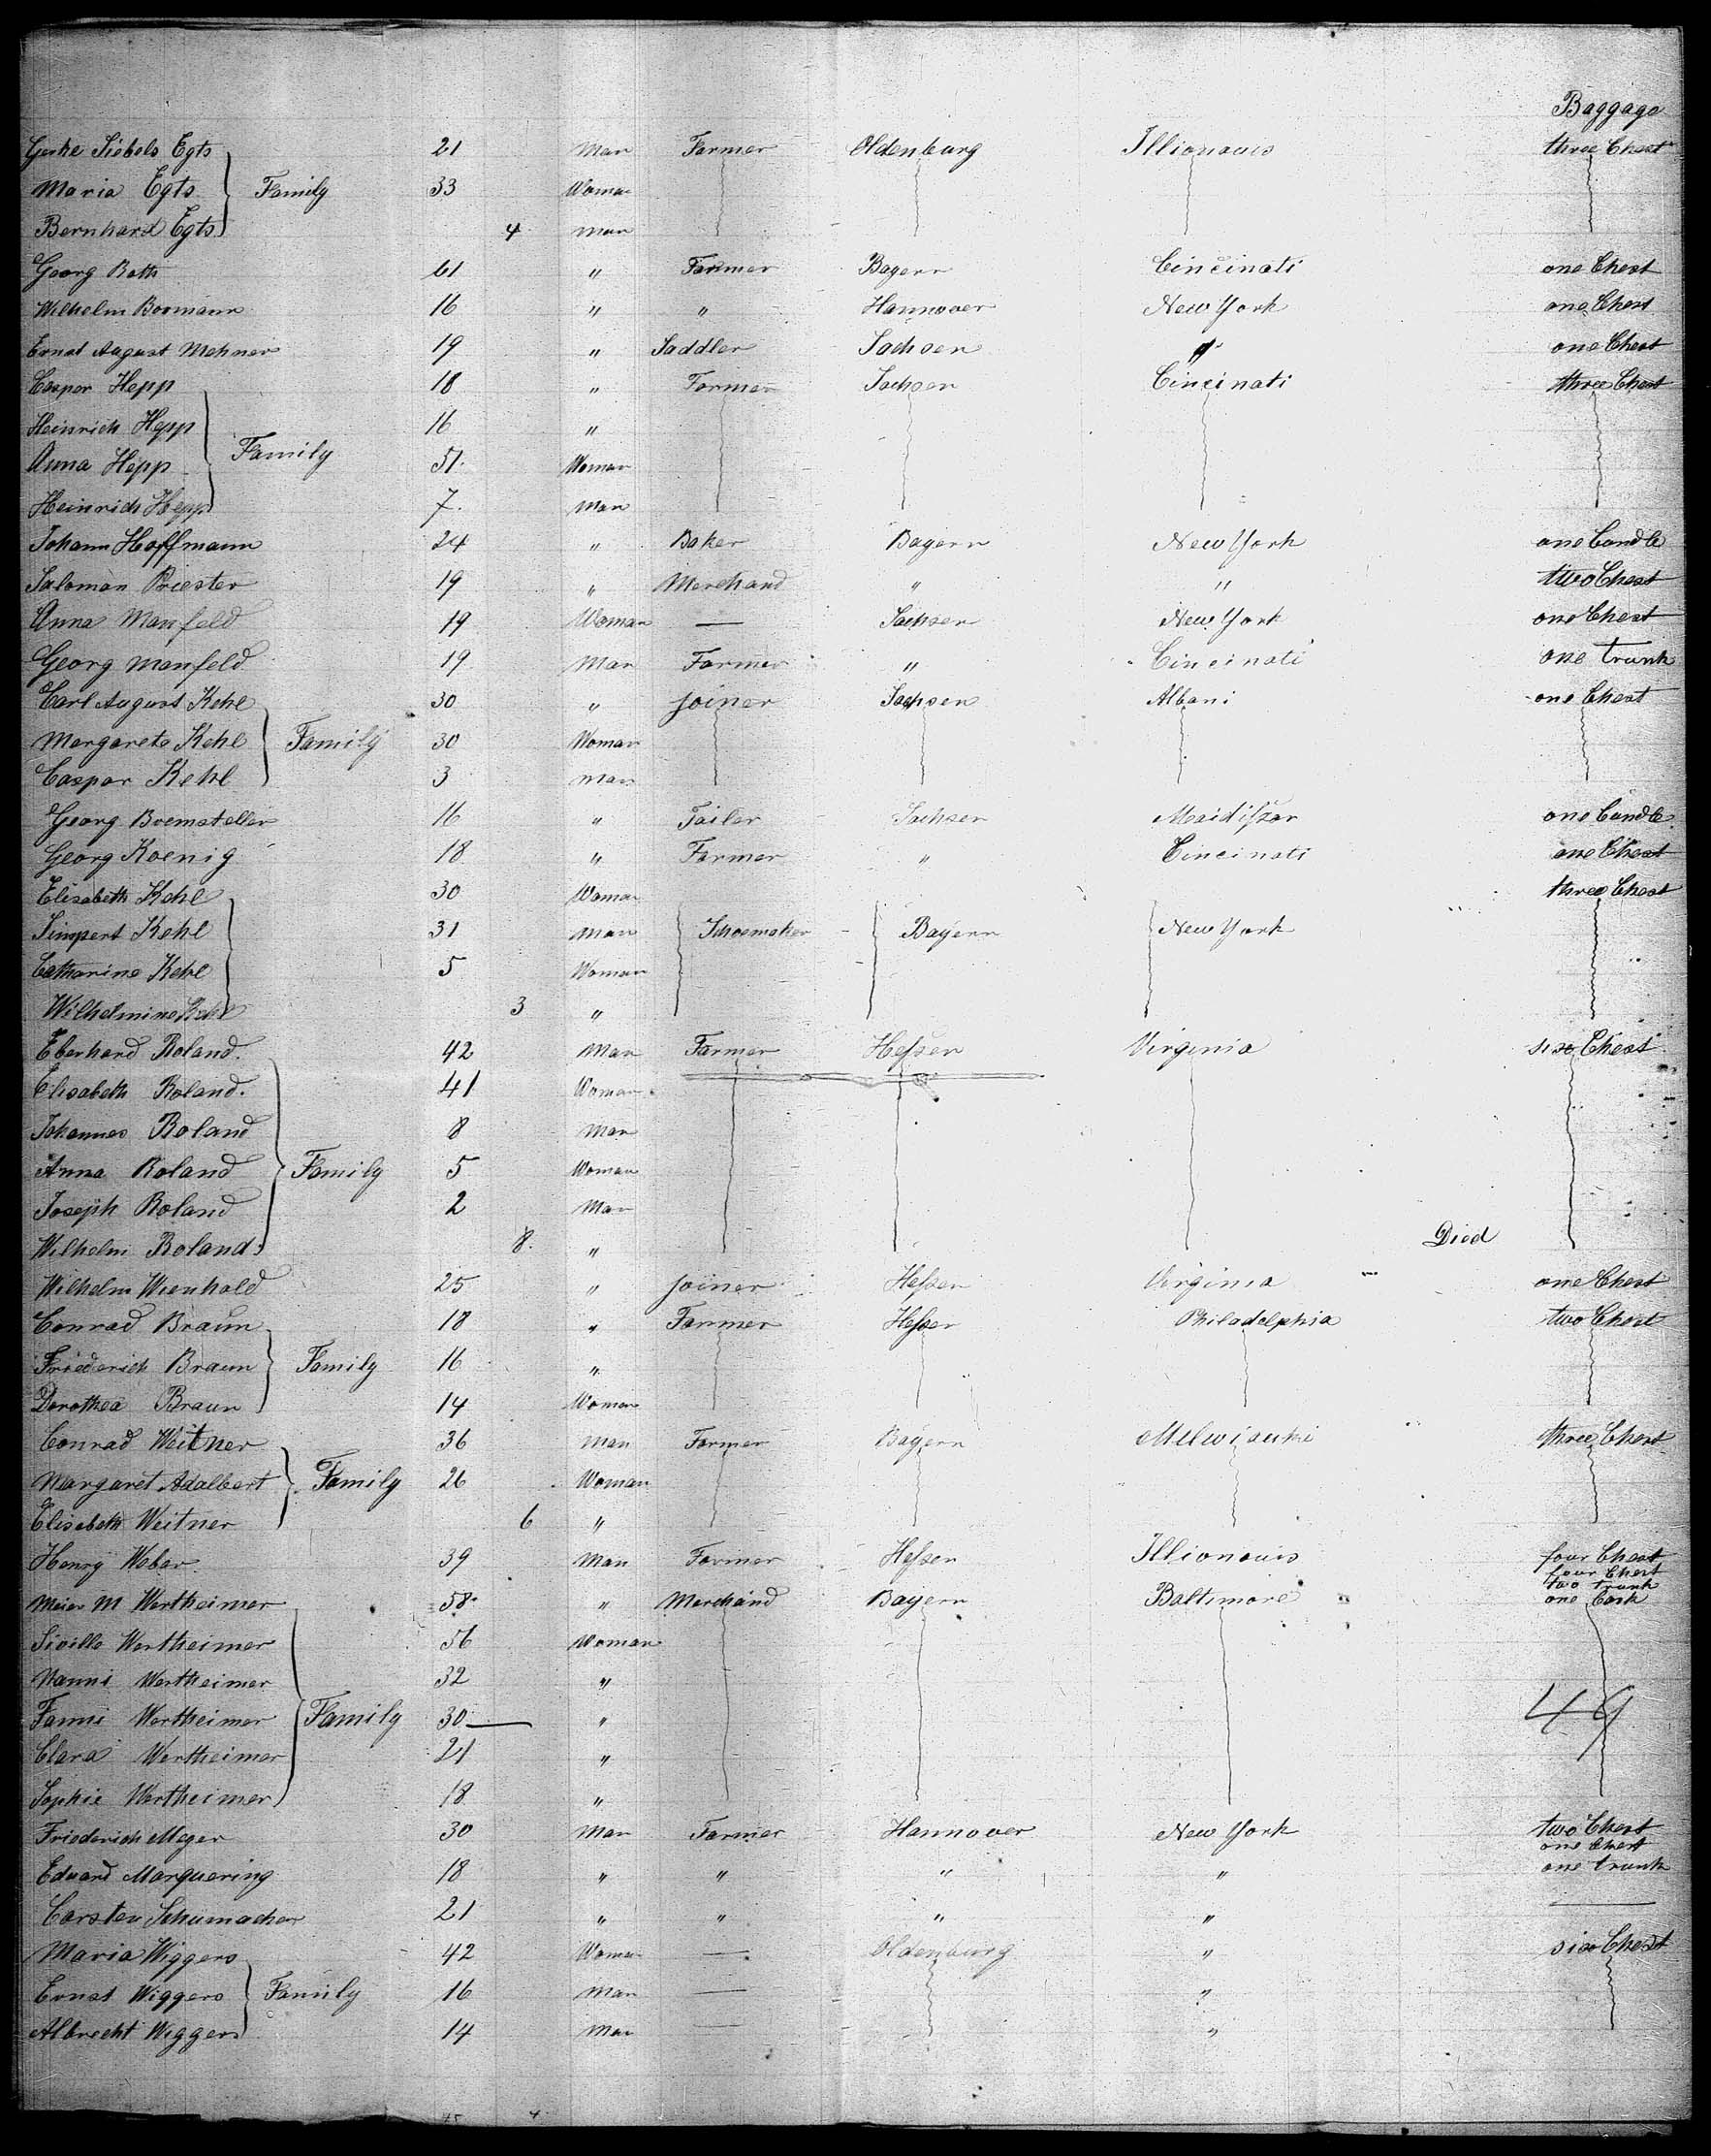 Baggage
Gerke Siebels Egts 21 Man Farmer Oldenburg Illionouis three Chest
Maria Egts Family 33 Woman
Bernhard Egts 4 man
Georg Roth 61 " Farmer Bayern Cincinati one Chest
Wilhelm Bormann 16 " " Hannover New York one Chest
Ernst August Mehner 19 " Saddler Sachsen " one Chest
Caspar Hepp 18 " Farmer Sachsen Cincinati three Chest
Heinrich Hepp 16 "
Anna Hepp Family 51. Woman
Heinrich Hepp 7. Man
Johann Hoffmann 24 " Baker Bayern New York one Bundle
Saloman Priester 19 " Merchand " " two Chest
Anna Manfeld 19 Woman — Sachsen New York one Chest
Georg Manfeld 19 Man Farmer " Cincinati one trunk
Carl August Kehl 30 " joiner Sachsen Albani one Chest
Margarete Kehl Family 30 Woman
Caspar Kehl 3 man
Georg Bremsteller 16 " Tailer Sachsen one Bundle
Georg Koenig 18 " Farmer " Cincinati one Chest
Elisabeth Kehl 30 Woman three Chest
Simpert Kehl 31 Man Schoemaker Bayern New York
Catharine Kehl 5 Woman
Wilhelmine Kehl 3 "
Eberhard Roland. 42 Man Farmer Hessen Virginia six Chest
Elisabeth Roland. 41 Woman
Johannes Roland 8 Man
Anna Roland Family 5 Woman
Joseph Roland 2 Man
Wilhelm Roland 8. " Died
Wilhelm Wienhold 25 " joiner Hessen Virginia one Chest
Conrad Braun 18 " Farmer Hessen Philadelphia two Chest
Friederich Braun Family 16 "
Dorothea Braun 14 Woman
Conrad Weitner 36 Man Farmer Bayern Melwisuke three Chest
Margaret Adalbert Family 26 Woman
Elisabeth Weitner 6 "
Henry Weber. 39 Man Farmer Hessen Illionouis four Chest
four Chest
two trunk
Meier M Wertheimer 58 " Merchand Bayern Baltimore one Cask
Siville Wertheimer 56 Woman
Nanni Wertheimer 32 "
Fanni Wertheimer Family 30 — " 49
Clara Wertheimer 21 "
Sophie Wertheimer 18 "
Friederich Meyer 30 Man Farmer Hannover New York two Chest
one Chest
Eduard Marquering 18 " " " " one trunk
Carsten Schumacher 21 " " " " —
Maria Wiggers 42 Woman — Oldenburg " six Chest
Ernst Wiggers Family 16 Man — "
Albrecht Wiggers 14 Man — "
45 4